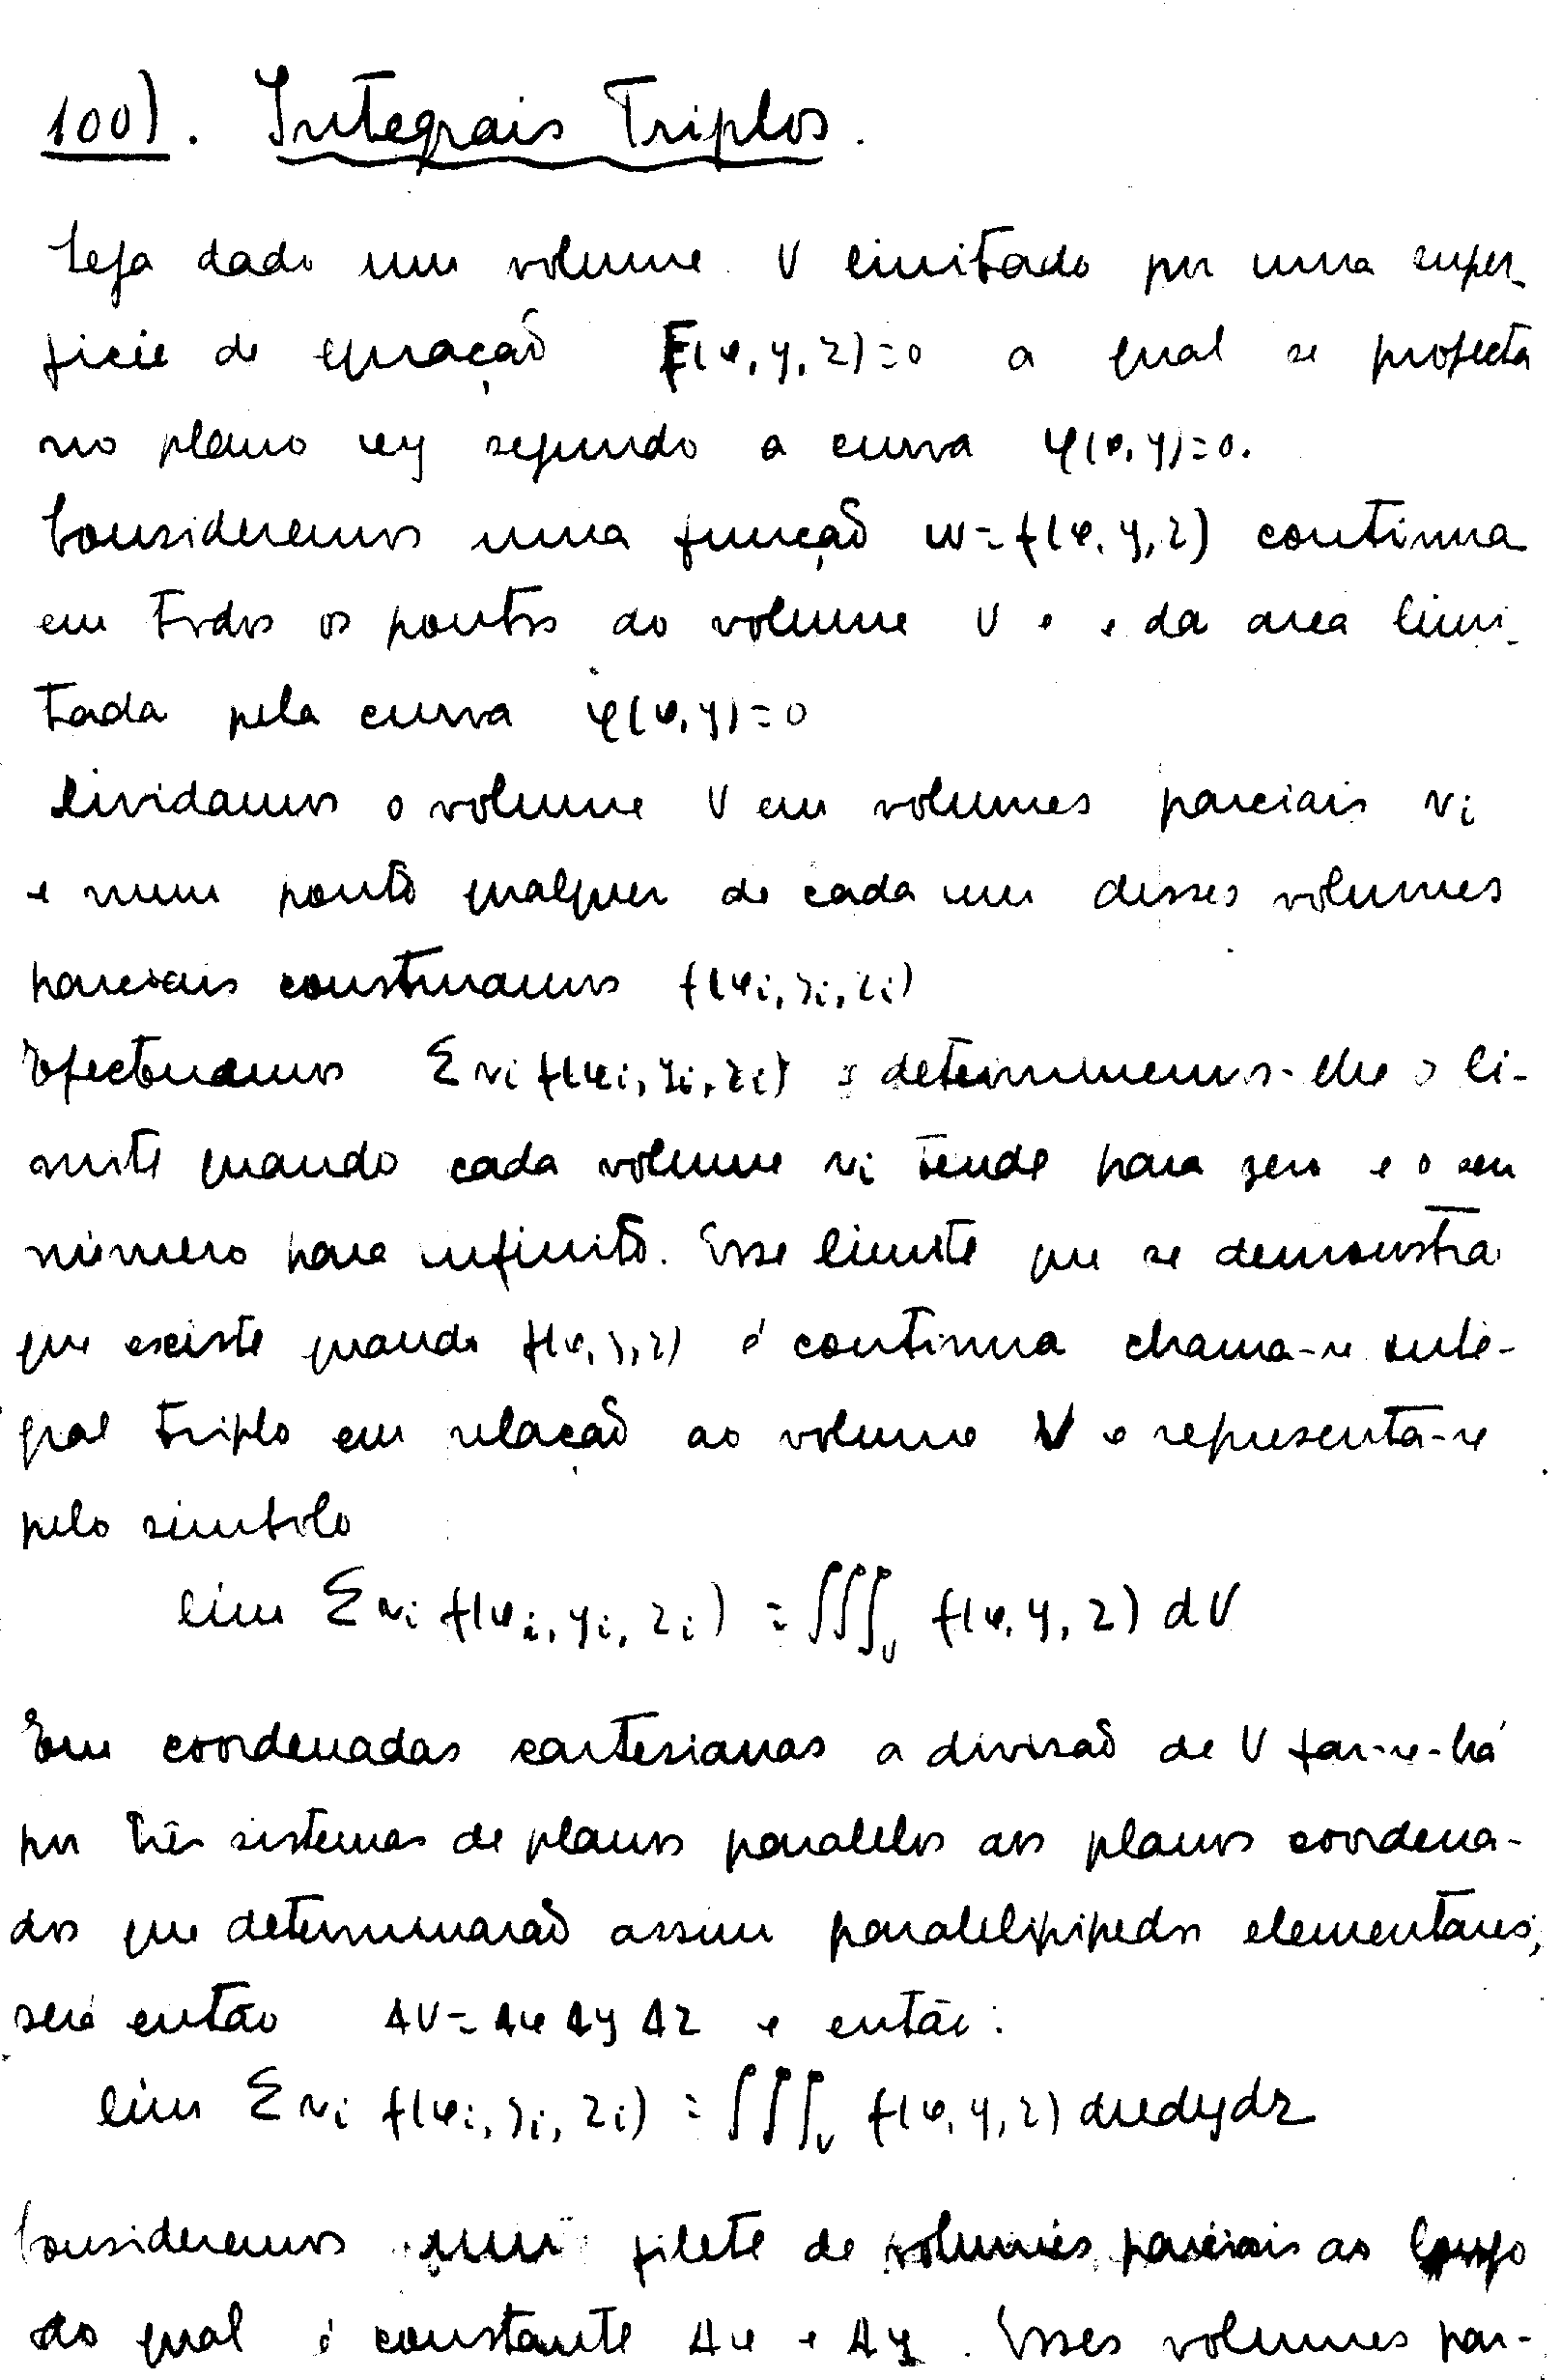 100). Integrais Triplos.
Seja dado um volume V limitado por uma super-
ficie de equação F(x, y, z)=0 a qual se projecta
no plano xy segundo a curva φ(x, y)=0.
Consideremos uma função w=f(x, y, z) continua
em todos os pontos do volume V e da area limi-
tada pela curva φ(x, y)=0
Dividamos o volume V em volumes parciais vi
e num ponto qualquer de cada um desses volumes
parciais construamos f(xi, yi, zi)
Efectuemos Σ vi f(xi, yi, zi) e determinemos-lhe o li-
mite quando cada volume vi tende para zero e o seu
número para infinito. Esse limite que se demonstra
que existe quando f(x, y, z) é continua chama-se inte-
gral triplo em relação ao volume V e representa-se
pelo simbolo
lim Σ vi f(xi, yi, zi) = ∫∫∫V f(x, y, z) dV
Em coordenadas cartesianas a divisão de V far-se-há
por três sistemas de planos paralelos aos planos coordena-
dos que determinarão assim paralelipipedos elementares;
será então ΔV= Δx Δy Δz e então:
lim Σ vi f(xi, yi, zi) = ∫∫∫V f(x, y, z) dxdydz
Consideremos um filete de volumes parciais ao longo
do qual é constante Δx e Δy. Esses volumes par-